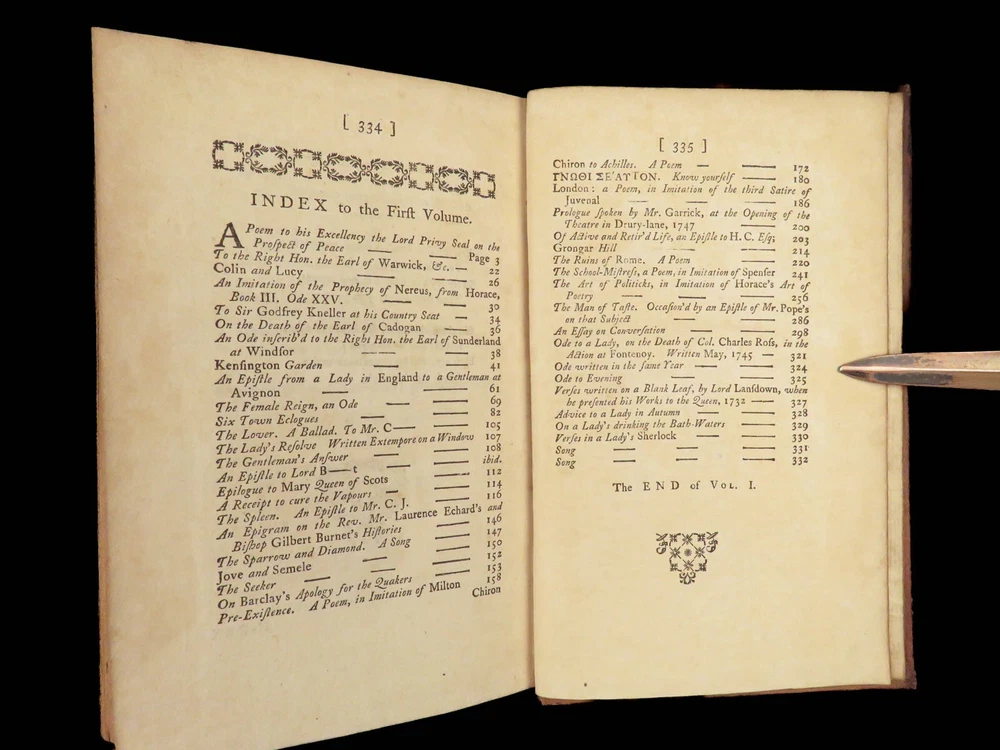 [ 334 ]
INDEX to the Firſt Volume.
A Poem to his Excellency the Lord Privy Seal on the
Proſpect of Peace — Page 3
To the Right Hon. the Earl of Warwick, &c. — 22
Colin and Lucy — — 26
An Imitation of the Prophecy of Nereus, from Horace,
Book III. Ode XXV. — — 30
To Sir Godfrey Kneller at his Country Seat — 34
On the Death of the Earl of Cadogan — 36
An Ode inſcrib'd to the Right Hon. the Earl of Sunderland
at Windſor — — 38
Kenſington Garden — — 41
An Epiſtle from a Lady in England to a Gentleman at
Avignon — — 61
The Female Reign, an Ode — — 69
Six Town Eclogues — — 82
The Lover. A Ballad. To Mr. C— — 105
The Lady's Reſolve Written Extempore on a Window 107
The Gentleman's Anſwer — — 108
An Epiſtle to Lord B—t — ibid.
Epilogue to Mary Queen of Scots — 112
A Receipt to cure the Vapours — — 114
The Spleen. An Epiſtle to Mr. C. J. — 116
An Epigram on the Rev. Mr. Laurence Echard's and
Biſhop Gilbert Burnet's Hiſtories — 146
The Sparrow and Diamond. A Song — 147
Jove and Semele — — 150
The Seeker — — 152
On Barclay's Apology for the Quakers — 153
Pre-Exiſtence. A Poem, in Imitation of Milton 158
Chiron
[ 335 ]
Chiron to Achilles. A Poem — — 172
ΓΝΩΘΙ ΣΕ'ΑΥΤΟΝ. Know yourſelf — 180
London: a Poem, in Imitation of the third Satire of
Juvenal — — — 186
Prologue ſpoken by Mr. Garrick, at the Opening of the
Theatre in Drury-lane, 1747 — 200
Of Active and Retir'd Life, an Epiſtle to H. C. Eſq; 203
Grongar Hill — — 214
The Ruins of Rome. A Poem — 220
The School-Miſtreſs, a Poem, in Imitation of Spenſer 241
The Art of Politicks, in Imitation of Horace's Art of
Poetry — — — 256
The Man of Taſte. Occaſion'd by an Epiſtle of Mr. Pope's
on that Subject — — 286
An Eſſay on Converſation — — 298
Ode to a Lady, on the Death of Col. Charles Roſs, in the
Action at Fontenoy. Written May, 1745 — 321
Ode written in the ſame Year — — 324
Ode to Evening — — 325
Verſes written on a Blank Leaf, by Lord Lanſdown, when
he preſented his Works to the Queen, 1732 — 327
Advice to a Lady in Autumn — — 328
On a Lady's drinking the Bath-Waters — 329
Verſes in a Lady's Sherlock — — 330
Song — — — 331
Song — — — 332
The END of VOL. I.